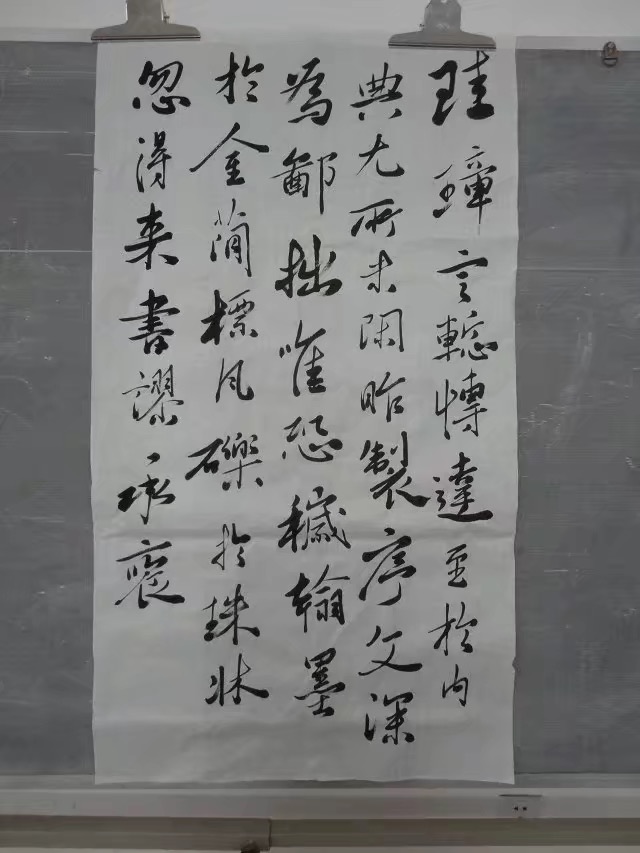 珪璋言慙愽達至於内
典尤所未閑昨製序文深
為鄙拙唯恐穢翰墨
於金簡標瓦礫於珠林
忽得来書謬承褒